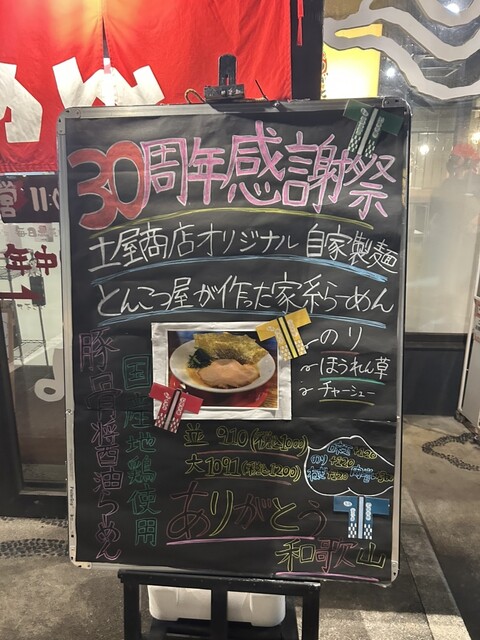 30周年感謝祭
土屋商店オリジナル 自家製麺
とんこつ屋が作った家系らーめん
のり
ほうれん草
チャーシュー
豚骨醤油らーめん
国産地鶏使用
並 910(税込1000)
大 1091(税込1200)
ありがとう
和歌山